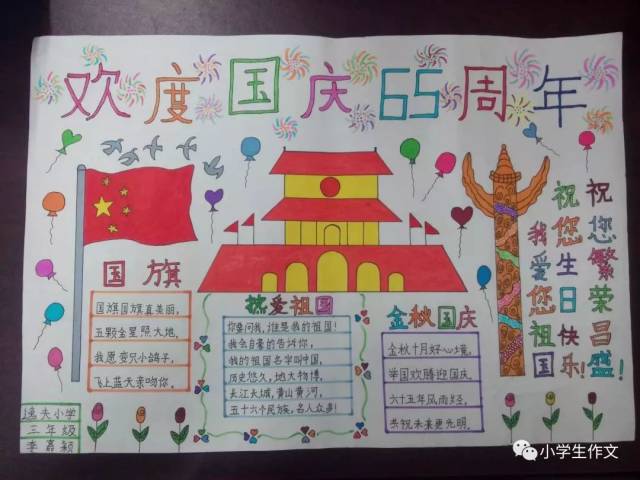 欢度国庆65周年
国旗
国旗国旗真美丽，
五颗金星照大地，
我愿变只小鸽子，
飞上蓝天亲吻你。
热爱祖国
你要问我，谁是我的祖国！
我会自豪的告诉你，
我的祖国名字叫中国，
历史悠久，地大物博，
长江长城，黄山黄河，
五十六个民族，名人众多！
金秋国庆
金秋十月好心境，
举国欢腾迎国庆。
六十五年风雨经，
恭祝未来更光明。
祝您繁荣昌盛！
祝您生日快乐！
我爱您祖国
逸夫小学
三年级
李嘉颖
小学生作文